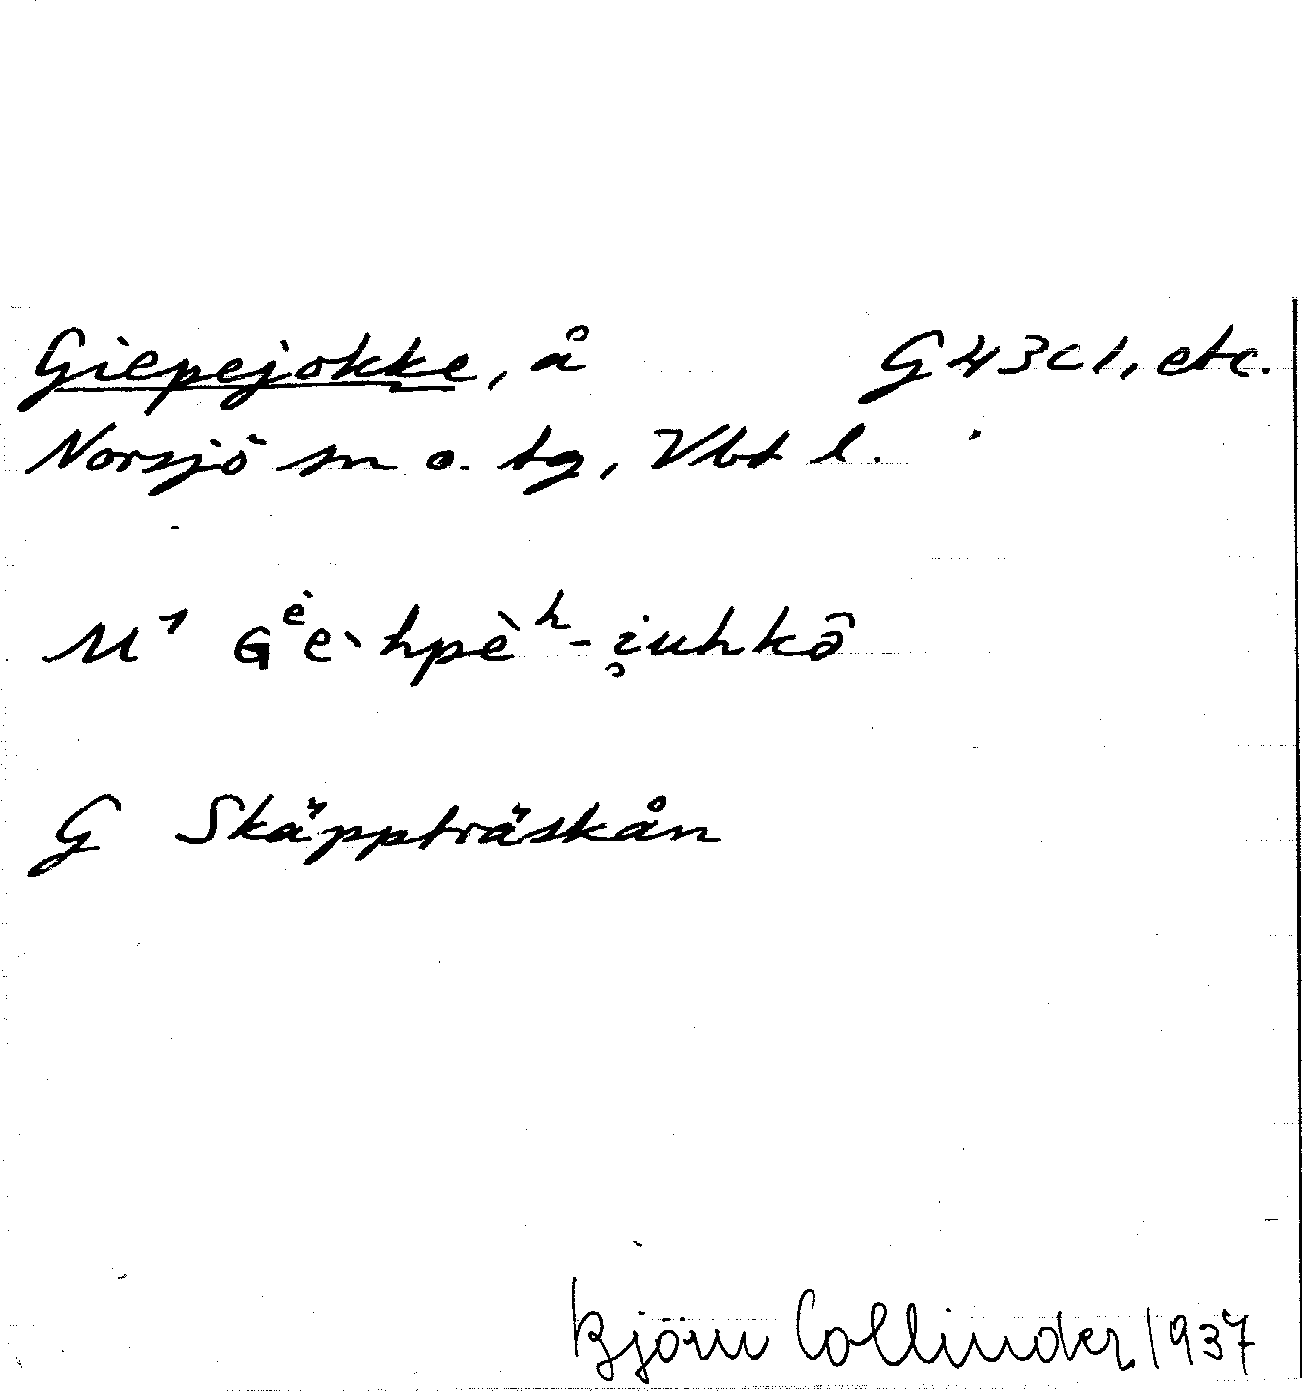 Giepejokke, å G43c1, etc.
Norsjö sn o. tg, Vbt l.
M1 Gᵉ̀è·hpèʰ-i̯uhkô
G Skäppträskån
Björn Collinder 1937